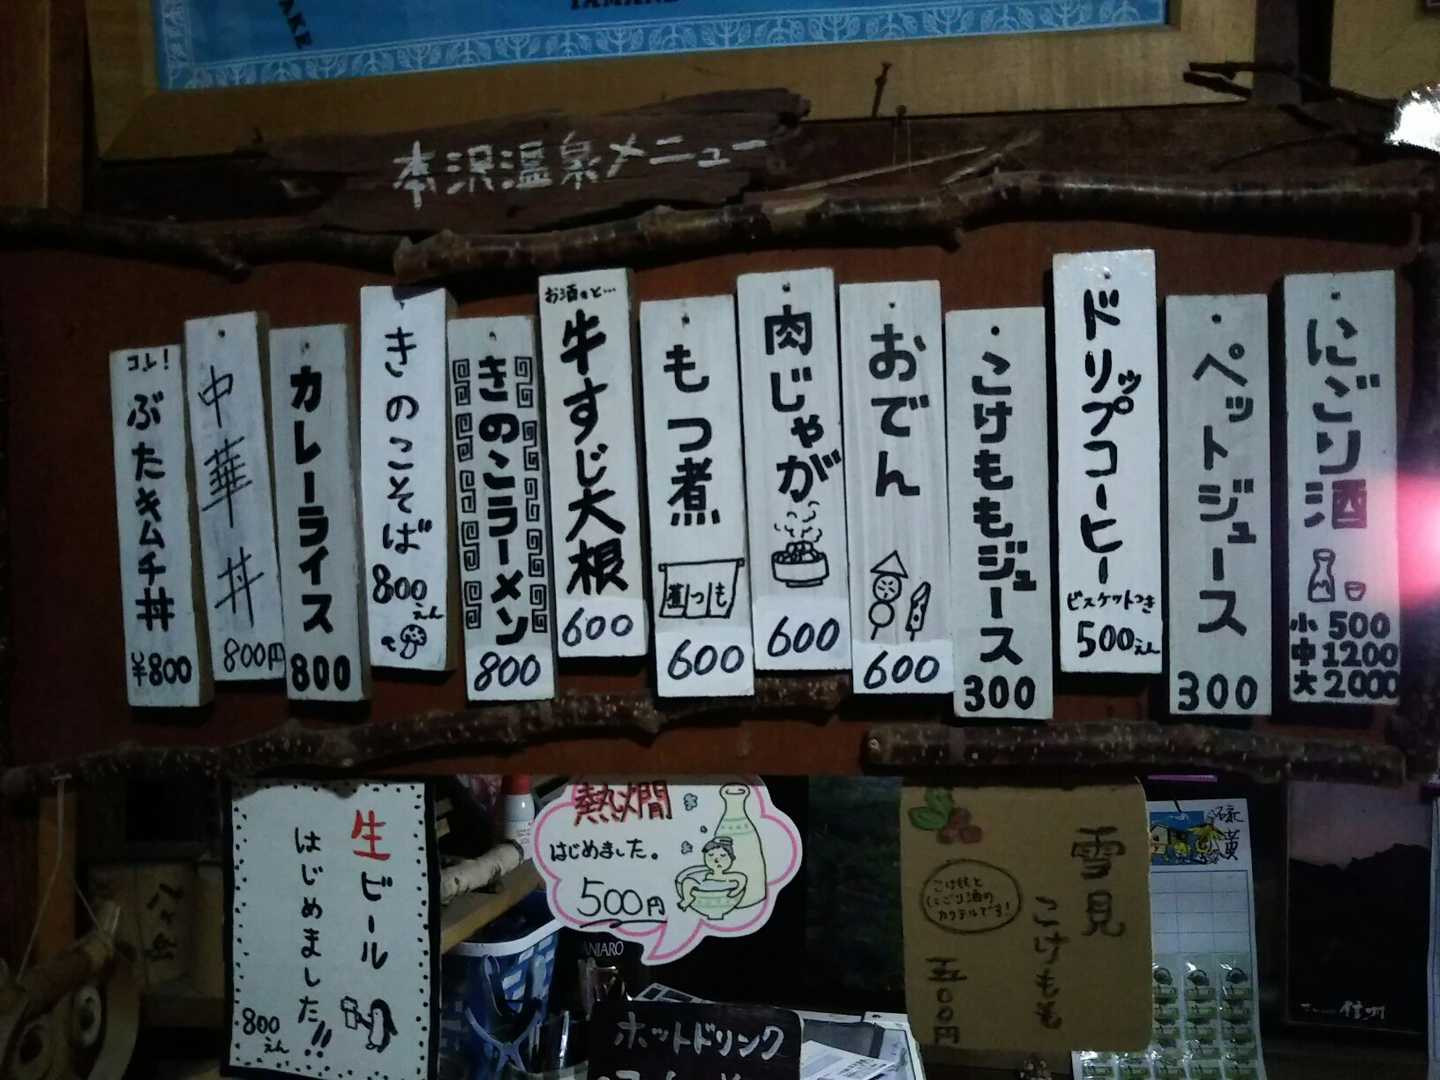 本沢温泉メニュー
コレ!
ぶたキムチ丼
¥800
中華丼
800円
カレーライス
800
きのこそば
800えん
きのこラーメン
800
お酒のと…
牛すじ大根
600
もつ煮
煮つも
600
肉じゃが
600
おでん
600
こけももジュース
300
ドリップコーヒー
ビスケットつき
500えん
ペットジュース
300
にごり酒
小 500
中 1200
大 2000
生ビール
はじめました!!
800えん
熱燗
はじめました。
500円
雪見
こけもも
こけももと
にごり酒の
カクテルです!
五〇〇円
ホットドリンク
八ヶ岳
信州
ANIARO